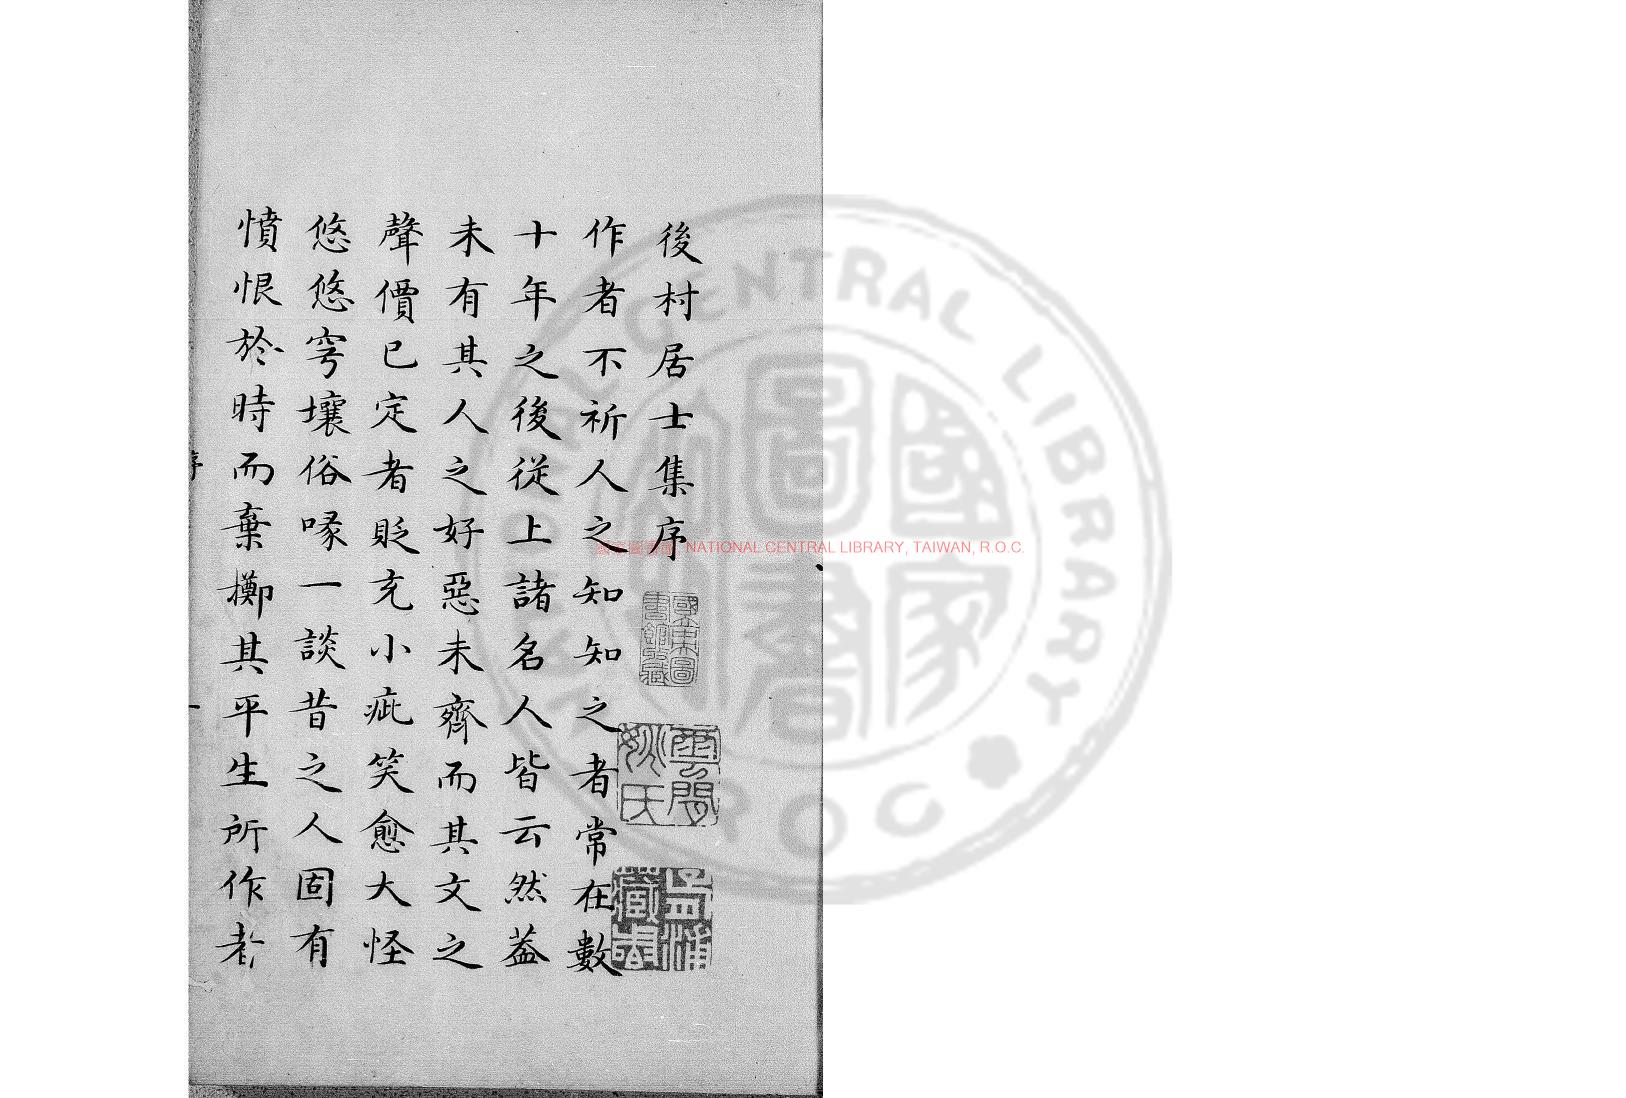 後村居士集序
作者不祈人之知知之者常在數
十年之後從上諸名人皆云然葢
未有其人之好惡未齊而其文之
聲價已定者貶充小疵笑愈大怪
悠悠穹壤俗喙一談昔之人固有
憤恨於時而棄擲其平生所作者
序
一
國家圖書館藏
雲間姚氏
藏書
國家圖書館 NATIONAL CENTRAL LIBRARY, TAIWAN, R.O.C.
國家圖書
CENTRAL LIBRARY
ROC